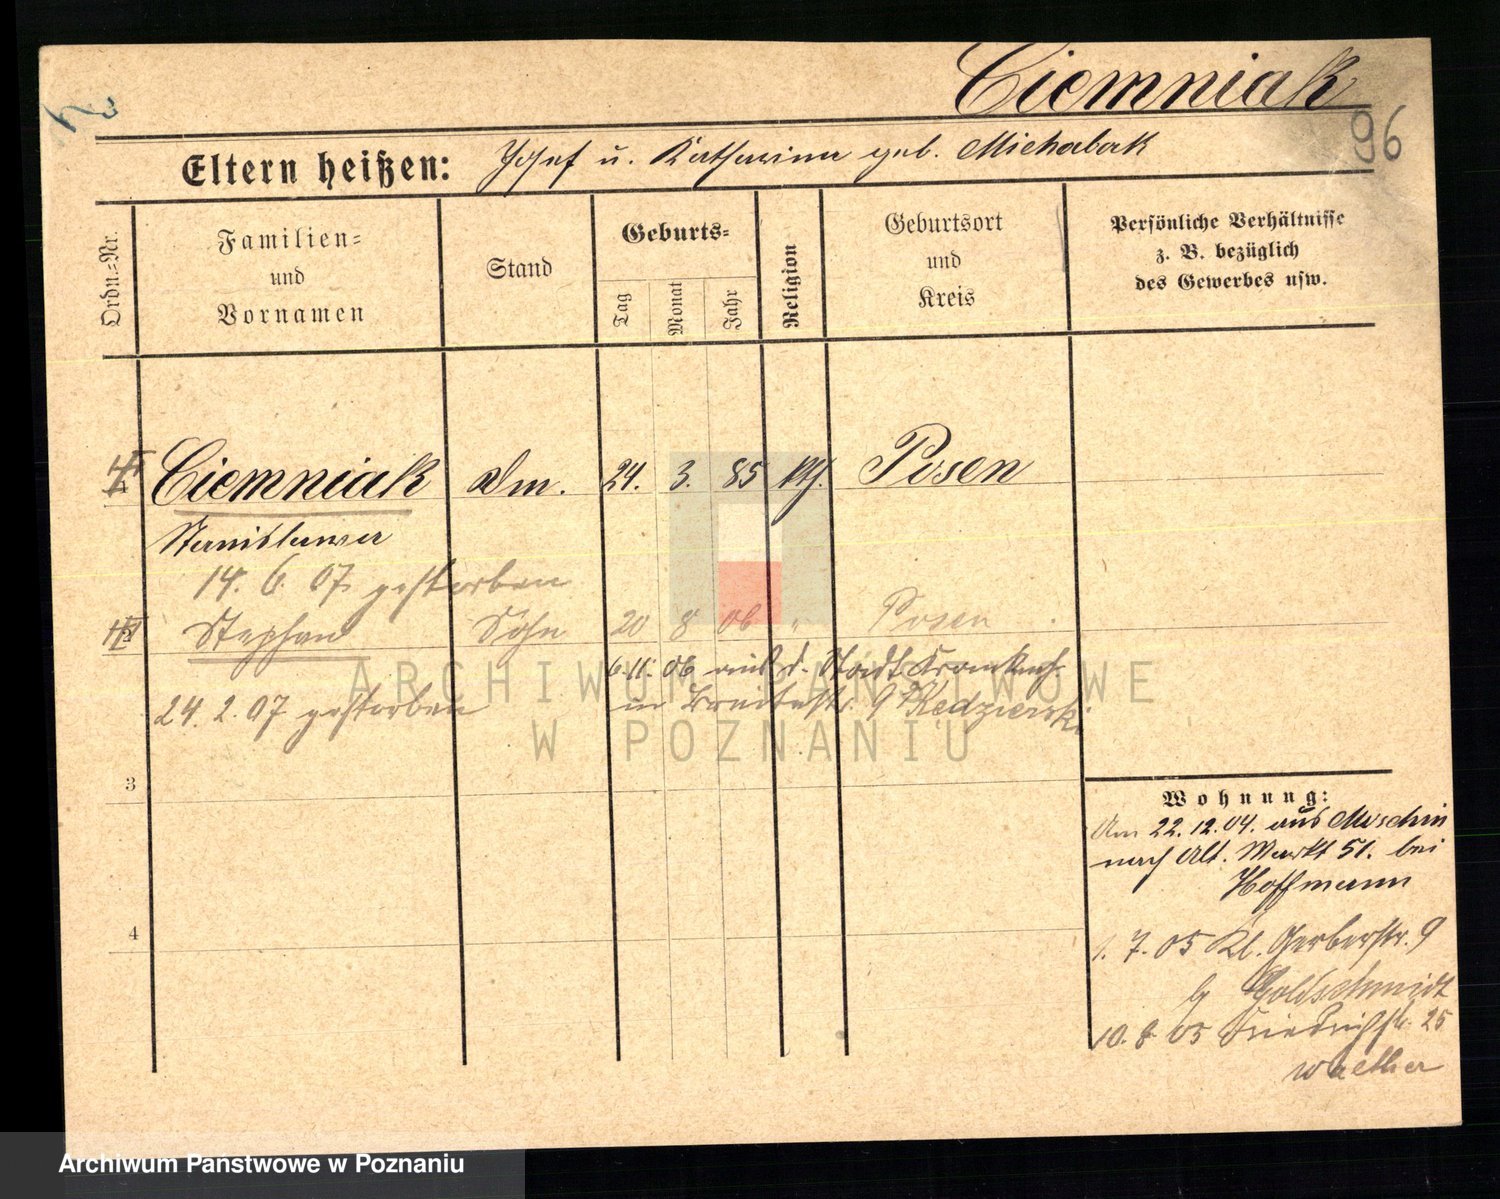 Ciemniak
96
Eltern heißen: Josef u. Katharina geb. Michalak
Ordn.=Nr.
Familien=
und
Vornamen
Stand
Geburts=
Tag
Monat
Jahr
Religion
Geburtsort
und
Kreis
Persönliche Verhältnisse
z. B. bezüglich
des Gewerbes usw.
Ciemniak Dm. 24. 3. 85 kth. Posen
Stanislawa
14. 6. 07 gestorben
2 Stephan Sohn 20 8 06 " Posen
6.11.06 aus d. Stadt Krankenh.
24. 2. 07 gestorben
in Breitestr. 9 Kedzierski
3
4
Wohnung:
Am 22.12.04. aus Moschin
nach Alt. Markt 51. bei
Hoffmann
1. 7. 05 Kl. Gerberstr. 9
b/ Goldschmidt
10. 8. 05 Friedrichstr. 25
Walther
ARCHIWUM PAŃSTWOWE
W POZNANIU
Archiwum Państwowe w Poznaniu